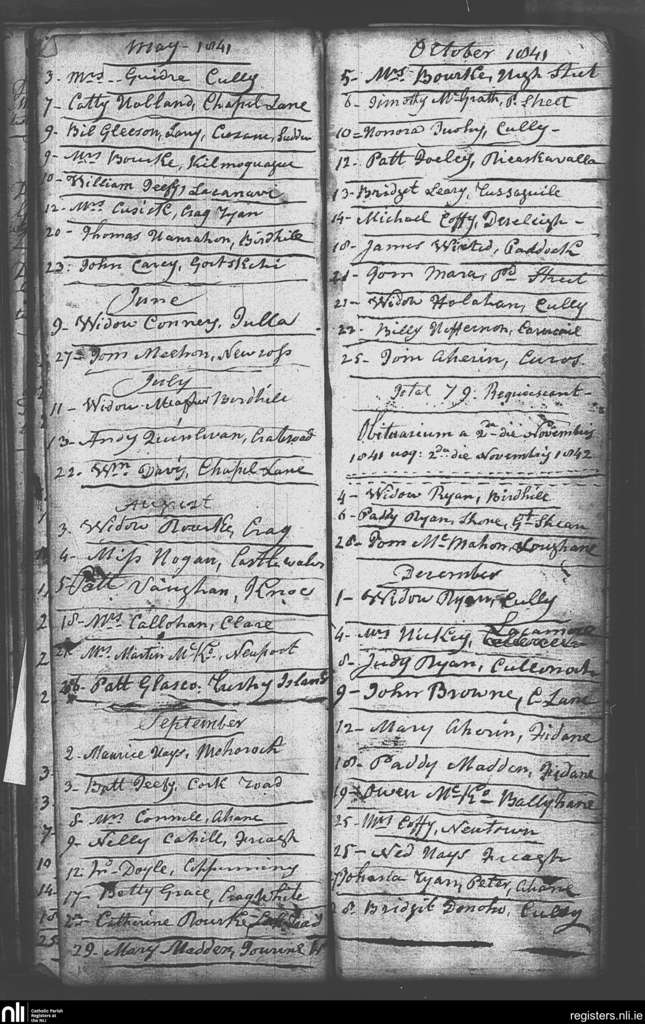 May 1841
3- Mrs - Guidre Cully
7- Catty Holland, Chapel Lane
9- Bil Gleeson, Lany,
9- Mrs Bourke, Kilmoguague
10- William Teefy,
12- Mrs Cusick, Crag Ryan
20- Thomas Hanrahon, Birdhile
23- John Carey,
June
9- Widow Connery, Tulla
27- Tom Meehon, Newross
July
11- Widow Birdhile
13- Andy Quinlivan,
22- Wm Davis, Chapel Lane
August
3. Widow Rourke, Crag
4- Miss Hogan,
5- Patt Vaughan, Knoc
18- Mrs Callohan, Clare
Mrs Martin McKo, Neuport
26- Patt Glasco. Turky Island
September
2- Maurice Hays, Mohorock
3- Batt Teefy, Cork Road
8- Mrs Connell, Ahane
9- Nelly Cahill, Freagh
12- Doyle,
17- Betty Grace, Crag White
Catherine Rourke,
29- Mary Madden,
October 1841
5- Mrs Bourke, High Street
6- Timothy McGrath, P. Street
10= Honora Tuohy, Cully-
12- Patt Foeley, Ricaskavalla
13- Bridget Leary, Cussaguile
14- Michael Coffy, Dereleigh -
18- James Wixted, Paddock
21- Tom Mara, Pd Street
21- Widow Holahan, Cully
22- Billy Heffernon,
25- Tom Aherin,
Total 79. Requiescant-
Obituarium a 2da die Novembris
1841 usq: 2da die Novembris 1842
4- Widow Ryan, Birdhile
6- Paddy Ryan, Shone,
28- Tom McMahon,
December
1- Widow Ryan, Cully
4- Mrs Hickey, Lacamore
8- Judy Ryan, Culeonoch
9- John Browne, C. Lane
12- Mary Aherin, Fidane
18- Paddy Madden, Fidane
19- Owen McKo Ballyhane
25- Mrs Coffy, Newtown
25- Ned Hays Freagh
Johana Ryan, Peter, Ahane
28. Bridgit Donoho, Cully
nli
Catholic Parish
Registers at
the NLI
registers.nli.ie